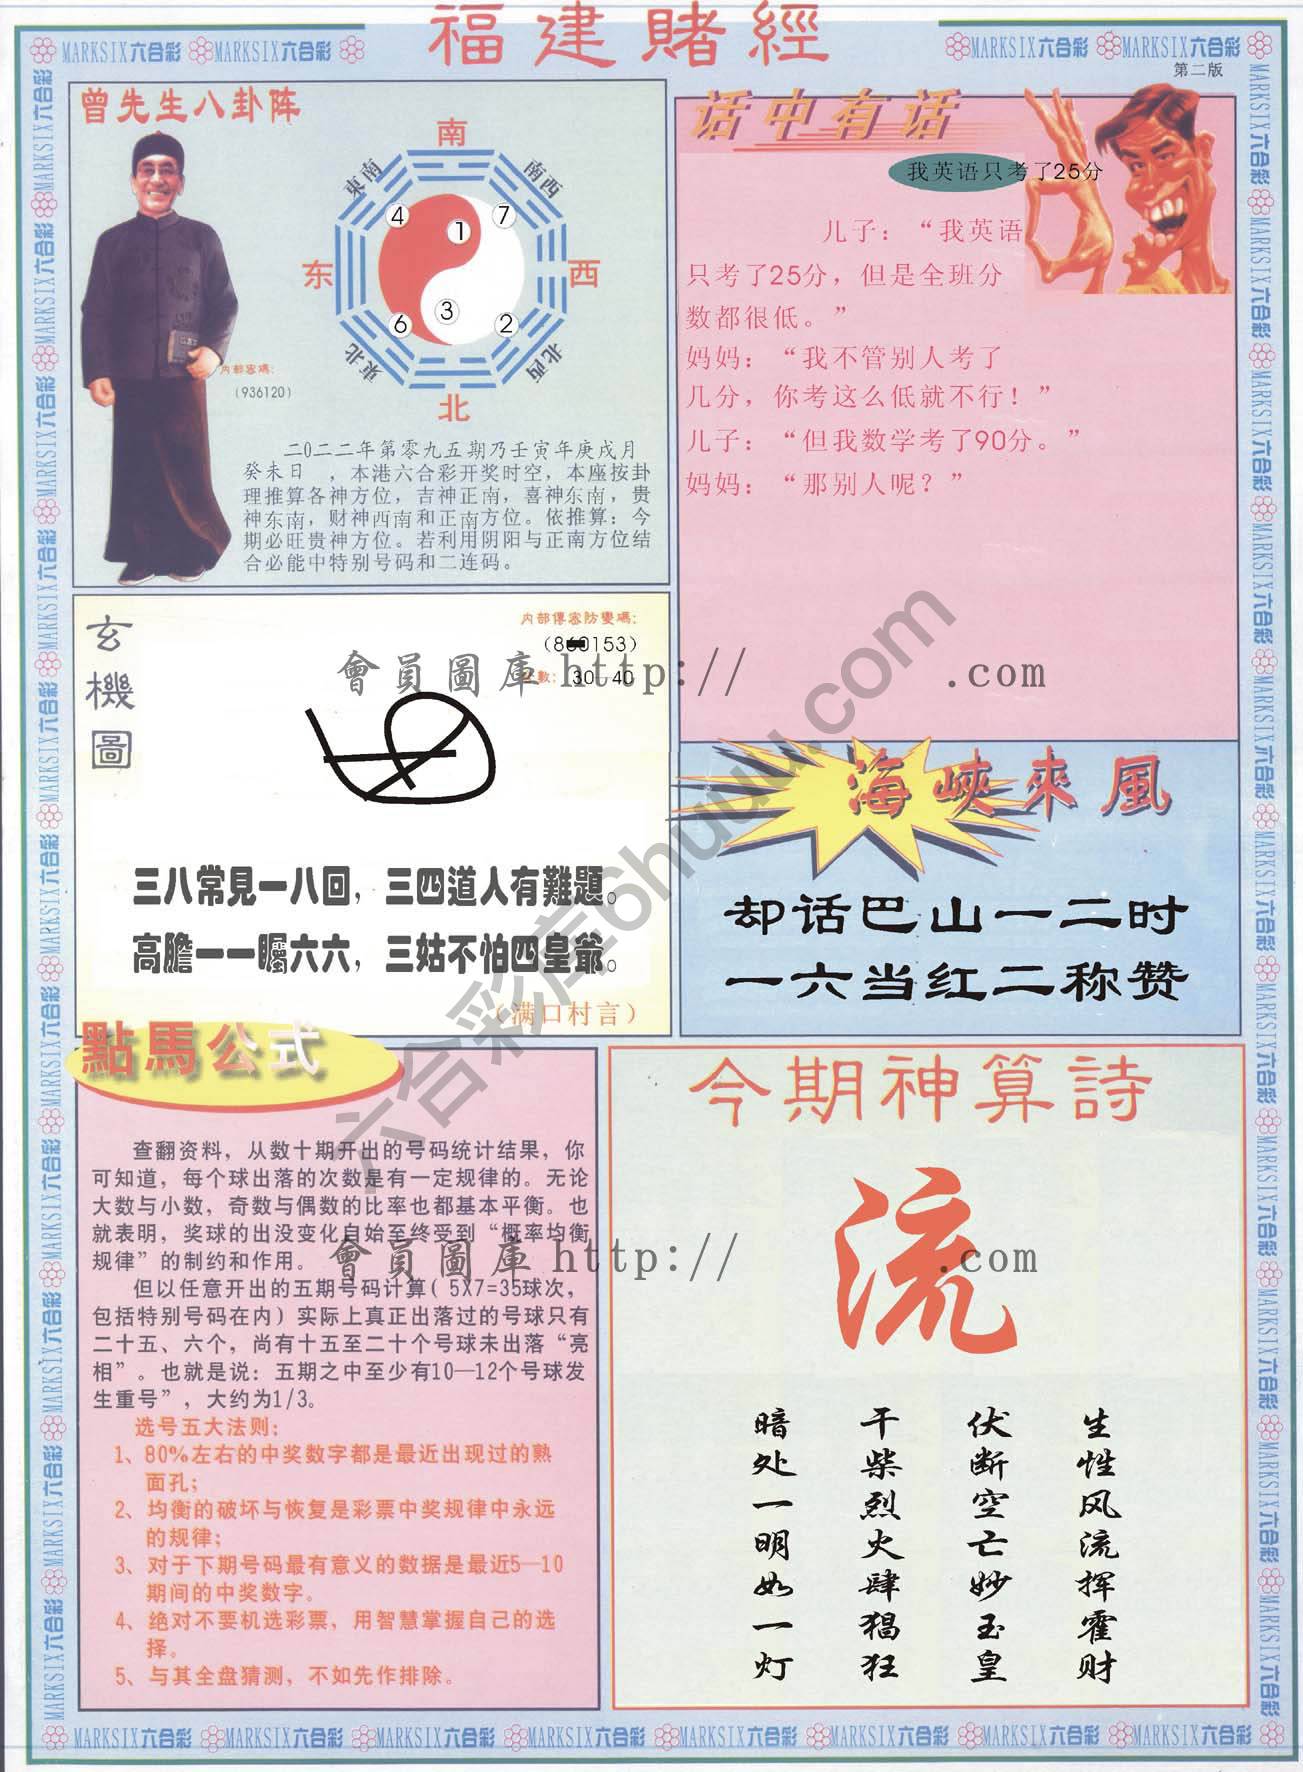 福建賭經
MARKSIX六合彩 MARKSIX六合彩
MARKSIX六合彩 MARKSIX六合彩
第二版
曾先生八卦阵
南
東南
南西
4
7
1
东
西
3
6
2
東北
北西
北
内部密碼：
（936120）
二0二二年第零九五期乃壬寅年庚戌月
癸未日，本港六合彩开奖时空，本座按卦
理推算各神方位，吉神正南，喜神东南，贵
神东南，财神西南和正南方位。依推算：今
期必旺贵神方位。若利用阴阳与正南方位结
合必能中特别号码和二连码。
话中有话
我英语只考了25分
儿子：“我英语
只考了25分，但是全班分
数都很低。”
妈妈：“我不管别人考了
几分，你考这么低就不行！”
儿子：“但我数学考了90分。”
妈妈：“那别人呢？”
玄機圖
内部傳密防變碼：
會員圖庫 http:// .com
30-40
三八常見一八回，三四道人有難題。
高膽一一矚六六，三姑不怕四皇爺。
（满口村言）
海峽來風
却话巴山一二时
一六当红二称赞
六合彩库6huuu.com
點馬公式
查翻资料，从数十期开出的号码统计结果，你
可知道，每个球出落的次数是有一定规律的。无论
大数与小数，奇数与偶数的比率也都基本平衡。也
就表明，奖球的出没变化自始至终受到“概率均衡
规律”的制约和作用。
但以任意开出的五期号码计算( 5X7=35球次，
包括特别号码在内）实际上真正出落过的号球只有
二十五、六个，尚有十五至二十个号球未出落“亮
相”。也就是说：五期之中至少有10—12个号球发
生重号”，大约为1/3。
选号五大法则：
1、80%左右的中奖数字都是最近出现过的熟
面孔；
2、均衡的破坏与恢复是彩票中奖规律中永远
的规律；
3、对于下期号码最有意义的数据是最近5—10
期间的中奖数字。
4、绝对不要机选彩票，用智慧掌握自己的选
择。
5、与其全盘猜测，不如先作排除。
今期神算詩
流
會員圖庫 http:// .com
生性风流挥霍财
伏断空亡妙玉皇
干柴烈火肆猖狂
暗处一明如一灯
MARKSIX六合彩 MARKSIX六合彩 MARKSIX六合彩 MARKSIX六合彩 MARKSIX六合彩 MARKSIX六合彩 MARKSIX六合彩 MARKSIX六合彩